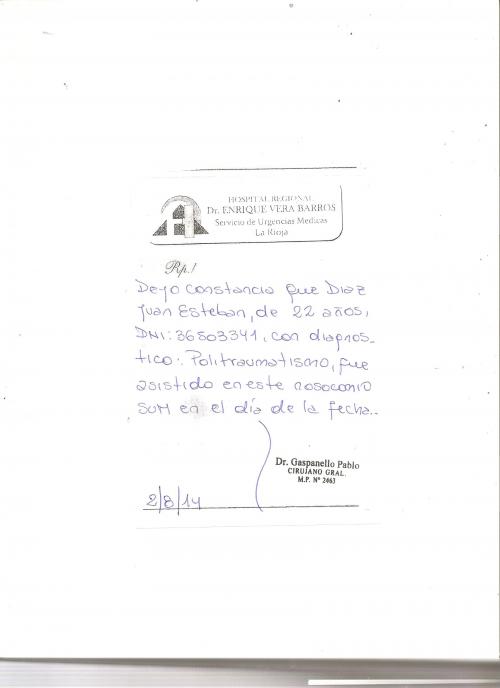 HOSPITAL REGIONAL
Dr. ENRIQUE VERA BARROS
Servicio de Urgencias Medicas
La Rioja
Rp./
Dejo constancia que Diaz
Juan Esteban, de 22 años,
DNI: 36503341, con diagnos-
tico: Politraumatismo, fue
asistido en este nosocomio
SUM en el día de la fecha..
Dr. Gaspanello Pablo
CIRUJANO GRAL.
M.P. Nº 2463
2/8/14